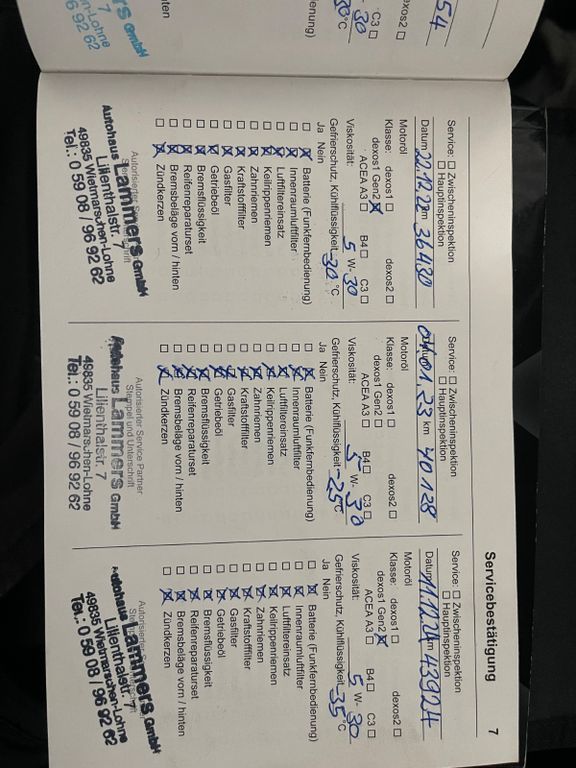 Servicebestätigung
7
54
dexos2 ☐
C3 ☐
30
30°C
dienung)
ers GmbH
7
n-Lohne
96 92 62
Service: ☐ Zwischeninspektion
☐ Hauptinspektion
Datum 22.12.22 km 36480
Motoröl
Klasse: dexos1 ☐ dexos2 ☐
dexos1 Gen2 ☒
ACEA A3 ☐ B4 ☐ C3 ☐
Viskosität: 5 W- 30
Gefrierschutz, Kühlflüssigkeit -30 °C
Ja Nein
☐ ☒ Batterie (Funkfernbedienung)
☐ ☒ Innenraumluftfilter
☐ ☒ Luftfiltereinsatz
☐ ☒ Keilrippenriemen
☐ ☒ Zahnriemen
☐ ☒ Kraftstofffilter
☐ ☒ Gasfilter
☐ ☒ Getriebeöl
☐ ☒ Bremsflüssigkeit
☐ ☒ Reifenreparaturset
☐ ☒ Bremsbeläge vorn / hinten
☐ ☒ Zündkerzen
Autohaus Lammers GmbH
Lilienthalstr. 7
49835 Wietmarschen-Lohne
Tel.: 0 59 08 / 96 92 62
Service: ☐ Zwischeninspektion
☐ Hauptinspektion
01.23 km 40128
Motoröl
Klasse: dexos1 ☐ dexos2 ☐
dexos1 Gen2 ☐
ACEA A3 ☐ B4 ☐ C3 ☐
Viskosität: 5 W- 30
Gefrierschutz, Kühlflüssigkeit -25 °C
Ja Nein
☐ ☒ Batterie (Funkfernbedienung)
☐ ☒ Innenraumluftfilter
☐ ☒ Luftfiltereinsatz
☐ ☒ Keilrippenriemen
☐ ☒ Zahnriemen
☐ ☒ Kraftstofffilter
☐ ☒ Gasfilter
☐ ☒ Getriebeöl
☐ ☒ Bremsflüssigkeit
☐ ☒ Reifenreparaturset
☐ ☒ Bremsbeläge vorn / hinten
☐ ☒ Zündkerzen
Autorisierter Service Partner
Stempel und Unterschrift
Autohaus Lammers GmbH
Lilienthalstr. 7
49835 Wietmarschen-Lohne
Tel.: 0 59 08 / 96 92 62
Service: ☐ Zwischeninspektion
☐ Hauptinspektion
Datum 11.12.24 km 43924
Motoröl
Klasse: dexos1 ☐ dexos2 ☐
dexos1 Gen2 ☒
ACEA A3 ☐ B4 ☐ C3 ☐
Viskosität: 5 W- 30
Gefrierschutz, Kühlflüssigkeit -35 °C
Ja Nein
☐ ☒ Batterie (Funkfernbedienung)
☐ ☒ Innenraumluftfilter
☐ ☒ Luftfiltereinsatz
☐ ☒ Keilrippenriemen
☐ ☒ Zahnriemen
☐ ☒ Kraftstofffilter
☐ ☒ Gasfilter
☐ ☒ Getriebeöl
☐ ☒ Bremsflüssigkeit
☐ ☒ Reifenreparaturset
☐ ☒ Bremsbeläge vorn / hinten
☐ ☒ Zündkerzen
Autohaus Lammers GmbH
Lilienthalstr. 7
49835 Wietmarschen-Lohne
Tel.: 0 59 08 / 96 92 62